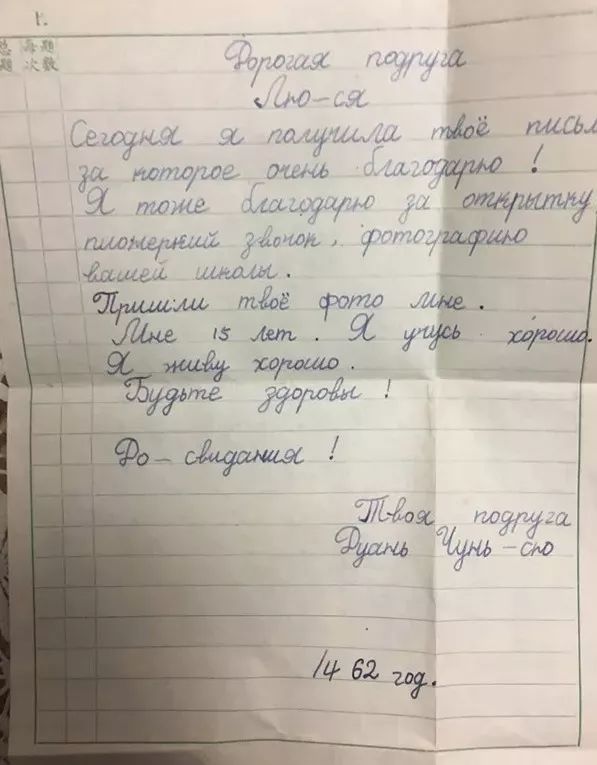 1.
总题 每题次数
Дорогая подруга
Лю-ся
Сегодня я получила твоё письм
за которое очень благодарю !
Я тоже благодарю за открытку,
пионерский звочок, фотографию
вашей школы.
Пришли твоё фото мне.
Мне 15 лет. Я учусь хорошо.
Я живу хорошо.
Будьте здоровы !
До-свидания !
Твоя подруга
Дуань Чунь-сю
14 62 год.